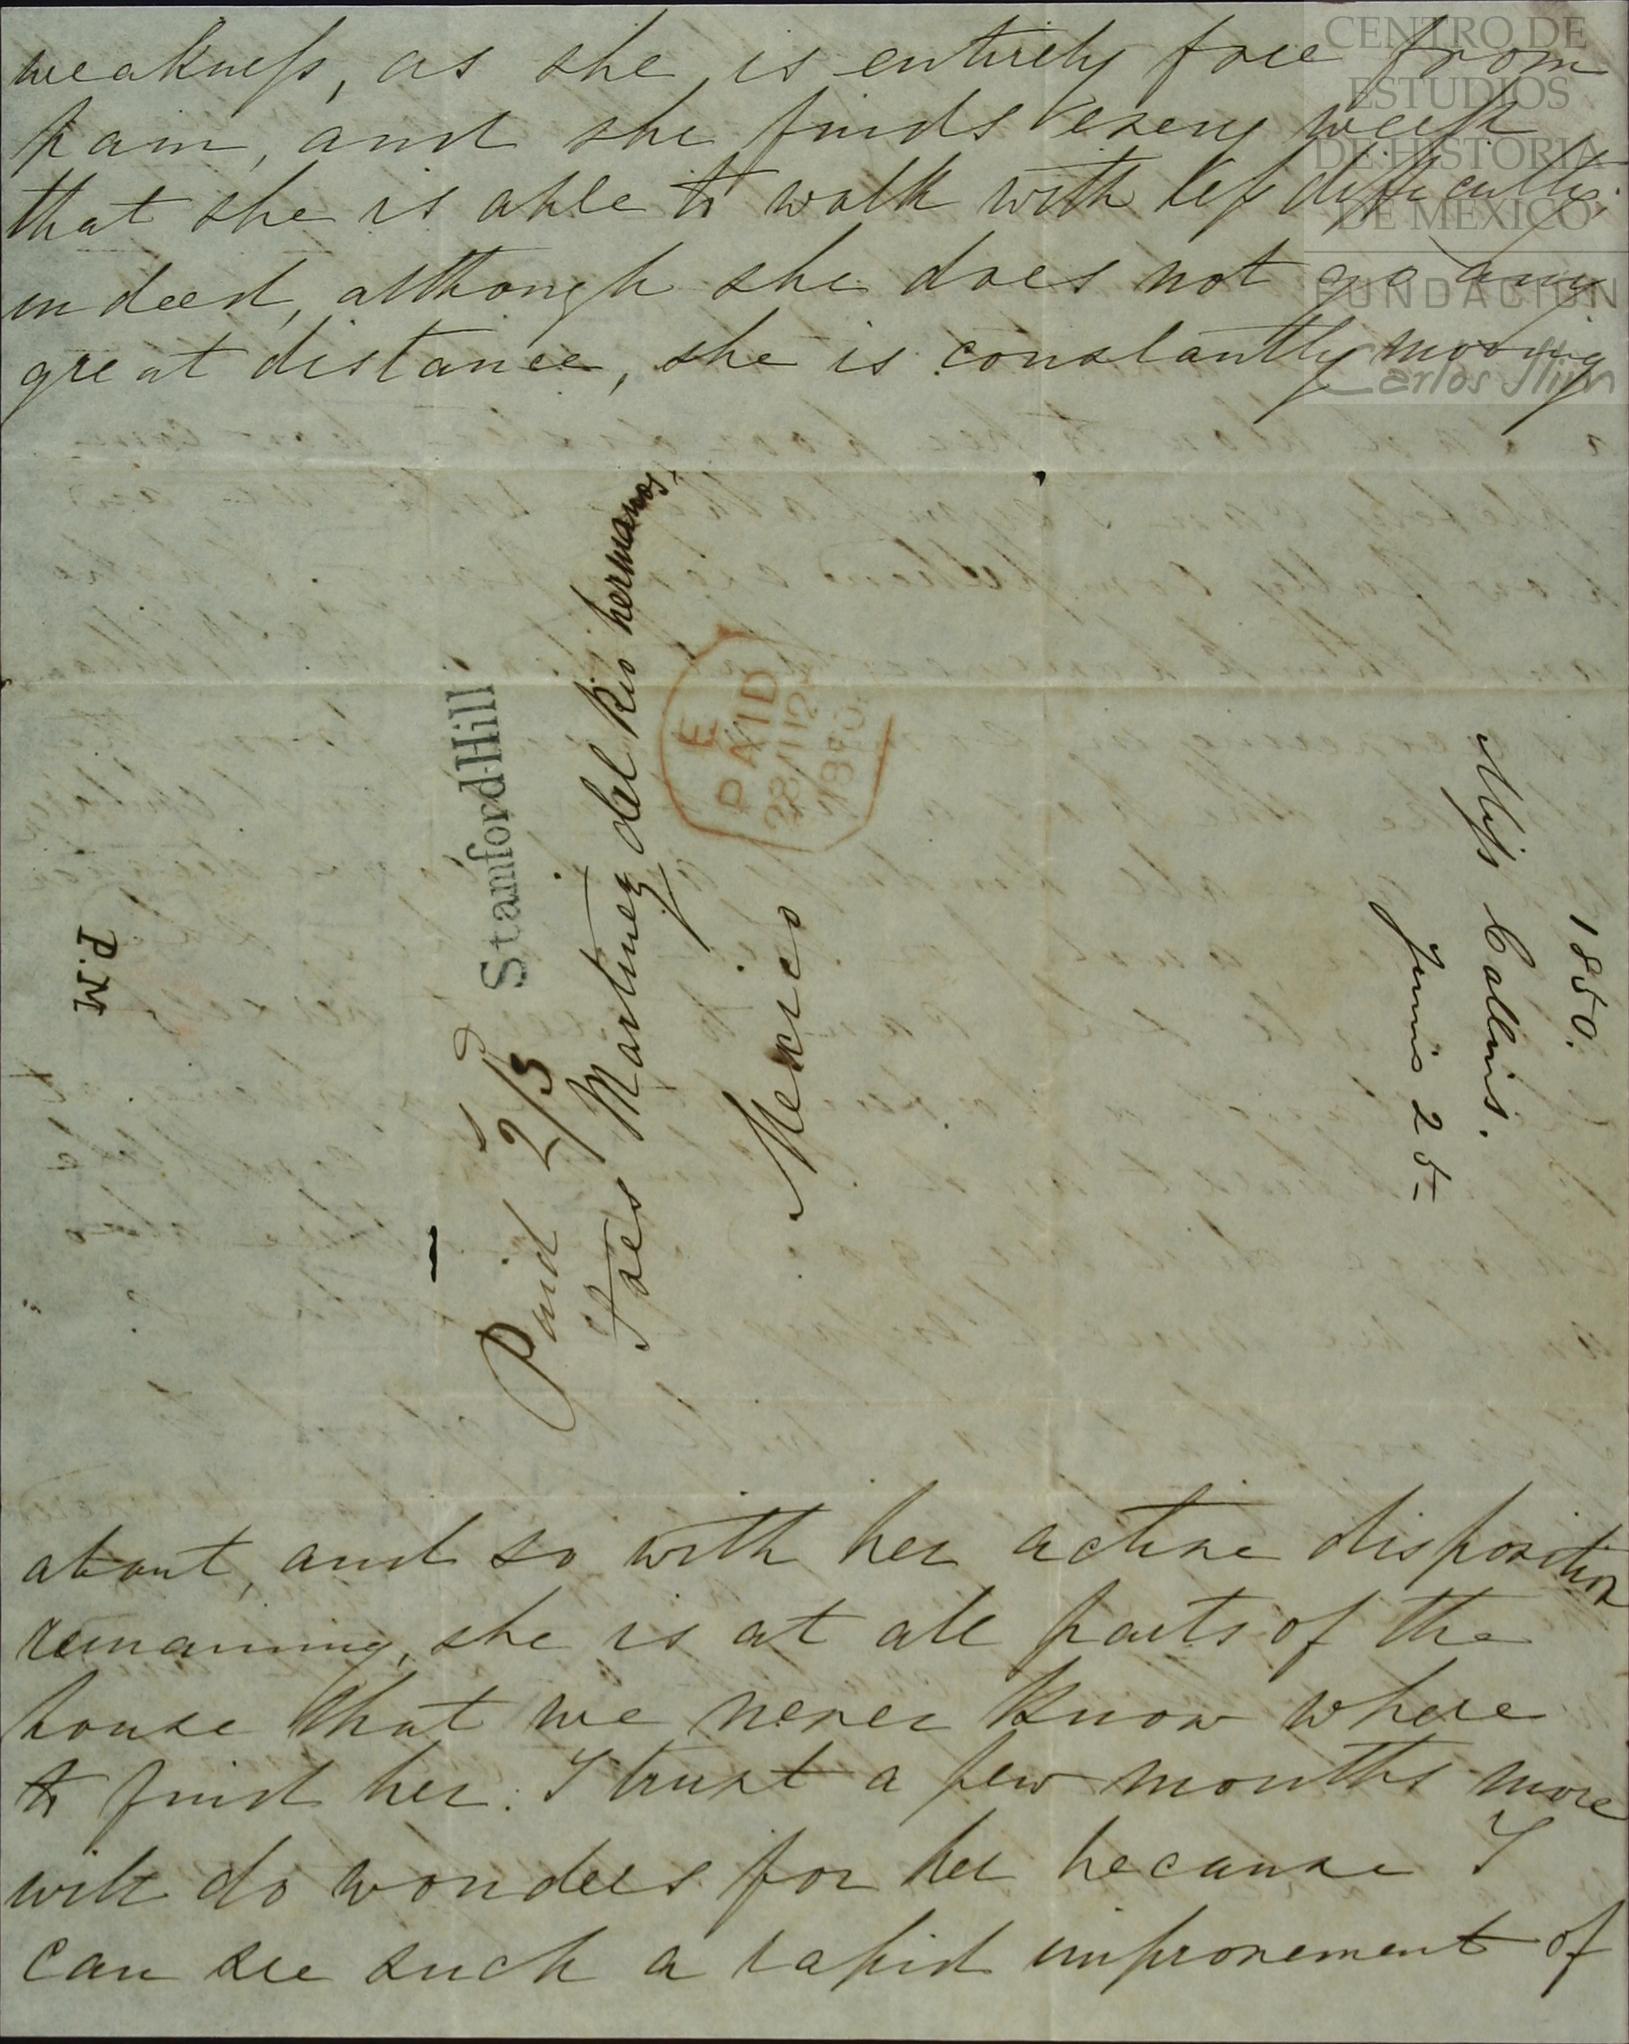 weakness, as she is entirely free from
pain, and she finds every week
that she is able to walk with less difficulty:
indeed, although she does not go any
great distance, she is constantly moving
Stamford-Hill
Paid 2/3
Sres Martinez del Rio hermanos,
Mexico
E
PAID
1850
1850.
Miss Callins.
Junio 25
P.M
about, and so with her active disposition
remaining, she is at all parts of the
house that we never know where
to find her. I trust a few months more
will do wonders for her because I
can see such a rapid improvement of
CENTRO DE
ESTUDIOS
DE HISTORIA
DE MEXICO
FUNDACIÓN
Carlos Slim